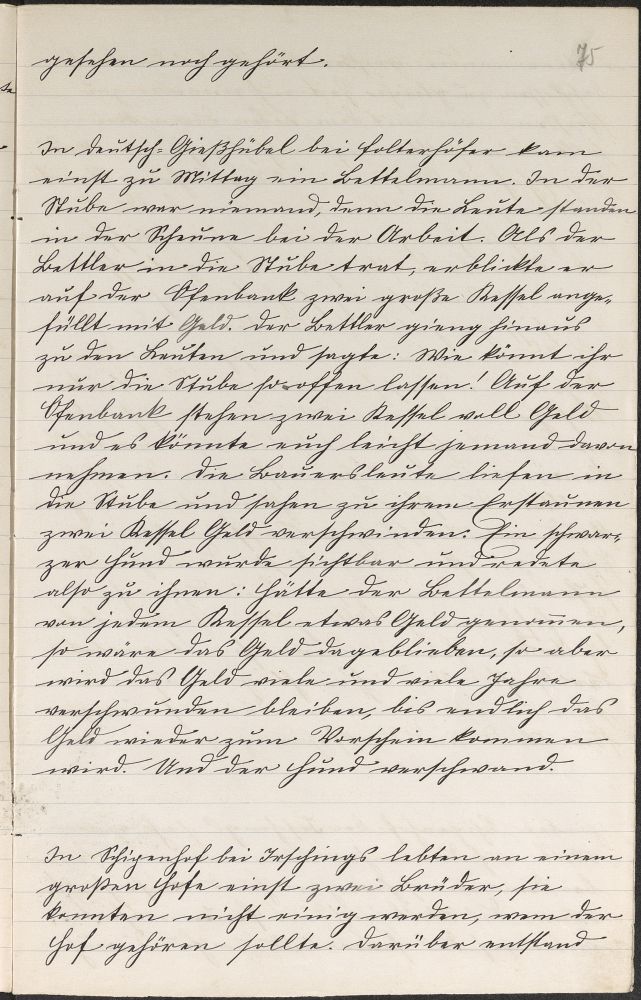 75
gesehen noch gehört.
In Deutsch-Gießhübel bei Folterhöfer kam
einst zu Mittag ein Bettelmann. In der
Stube war niemand, denn die Leute standen
in der Scheune bei der Arbeit. Als der
Bettler in die Stube trat, erblickte er
auf der Ofenbank zwei große Kessel ange-
füllt mit Geld. Der Bettler gieng hinaus
zu den Leuten und sagte: Wie könnt ihr
nur die Stube so offen lassen! Auf der
Ofenbank stehen zwei Kessel voll Geld
und es könnte euch leicht jemand davon
nehmen. Die Bauersleute liefen in
die Stube und sahen zu ihrem Erstaunen
zwei Kessel Geld verschwinden. Ein schwar-
zer Hund wurde sichtbar und redete
also zu ihnen: Hätte der Bettelmann
von jedem Kessel etwas Geld genom̅en,
so wäre das Geld dageblieben, so aber
wird das Geld viele und viele Jahre
verschwunden bleiben, bis endlich das
Geld wieder zum Vorschein kommen
wird. Und der Hund verschwand.
In Schipenhof bei Irschings lebten an einem
großen Hofe einst zwei Brüder, sie
konnten nicht einig werden, wem der
Hof gehören sollte. Darüber entstand